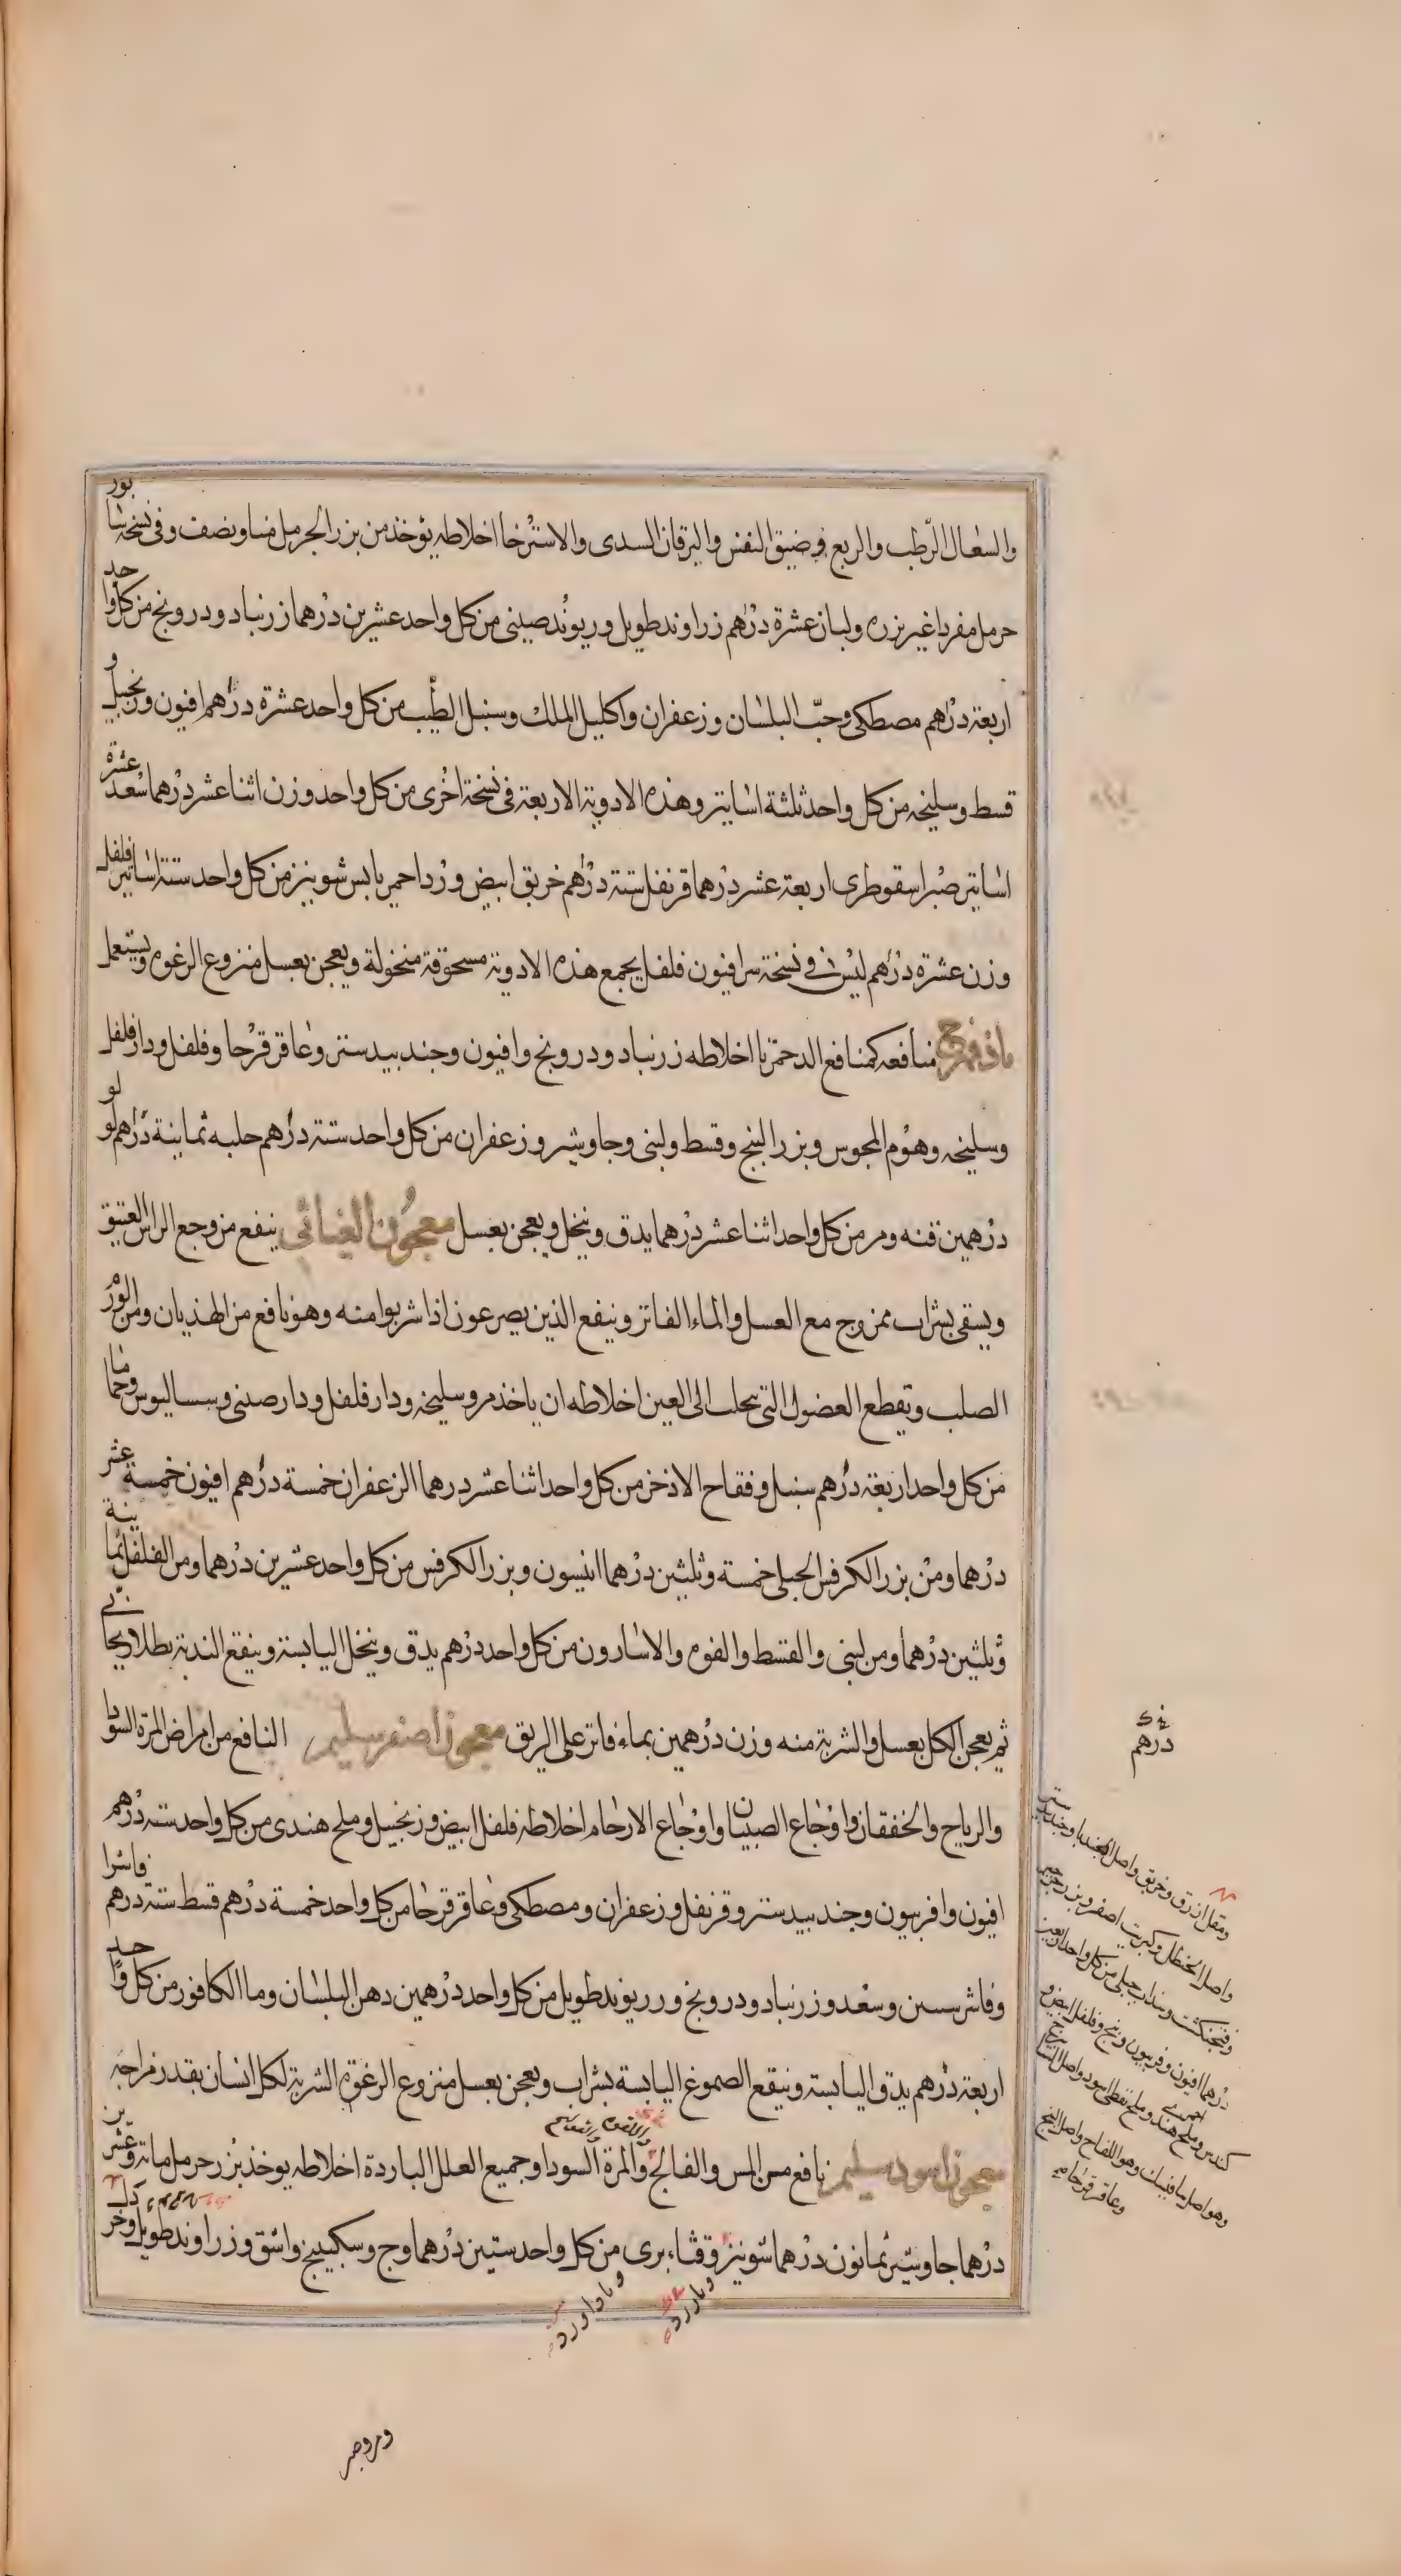 والسعال الرّطب والربع وضيق النفس واليرقان السدى والاسترخا اخلاطه يؤخذ من بزر الحرمل منا ونصف وفى نسخة شابور
حرمل مفردا غير بزره ولبان عشرة درهم زراوند طويل وريوند صينى من كل واحد عشرين درهما زرنباد ودرونج من كل واحد
اربعة درهم مصطكى وحبّ البلسان وزعفران واكليل الملك وسنبل الطّيب من كل واحد عشرة درهم افيون وزنجبيل و
قسط وسليخه من كل واحد ثلثة اساتير وهذه الادوية الاربعة فى نسخة اخرى من كل واحد وزن اثنا عشر درهما سعد عشرة
اساتير صبر اسقوطرى اربعة عشر درهما قرنفل ستة درهم خربق ابيض ورد احمر يابس شونيز من كل واحد ستة اساتير فلفل
وزن عشرة درهم ليس فى نسخة سرافيون فلفل يجمع هذه الادوية مسحوقة منخولة ويعجن بعسل منزوع الرغوه ويستعمل
منافعه كمنافع الدحمرثا اخلاطه زرنباد ودرونج وافيون وجندبيدستر وعاقرقرحا وفلفل ودارفلفل
وسليخه وهوم المجوس وبزر البنج وقسط ولبنى وجاوشير وزعفران من كل واحد ستة درهم حلبه ثمانية درهم لولو
درهمين قنه ومر من كل واحد اثنا عشر درهما يدق وينخل ويعجن بعسل معجون الغياثى ينفع من وجع الراس العتيق
ويسقى بشراب ممزوج مع العسل والماء الفاتر وينفع الذين يصرعون اذا شربوا منه وهو نافع من الهذيان ومن الورم
الصلب وتقطع الفضول التى تجلب الى العين اخلاطه ان ياخذ مر وسليخه ودارفلفل ودارصينى وسساليوس وحماما
من كل واحد اربعة درهم سنبل وفقاح الاذخر من كل واحد اثنا عشر درهما الزعفران خمسة درهم افيون خمسة عشر
درهما ومن بزر الكرفس الجبلى خمسة وثلثين درهما انيسون وبزر الكرفس من كل واحد عشرين درهما ومن الفلفل ثمانية
وثلثين درهما ومن لبنى والقسط والفوه والاسارون من كل واحد درهم يدق وينخل اليابسة وينقع الندية بطلا ريحانى
ثم يعجن الكل بعسل والشربة منه وزن درهمين بماء فاتر على الريق معجون اصفر سليم النافع من امراض المرة السودا
والرياح والخفقان واوجاع الصبيان واوجاع الارحام اخلاطه فلفل ابيض وزنجبيل وملح هندى من كل واحد ستة درهم
افيون وافربيون وجندبيدستر وقرنفل وزعفران ومصطكى وعاقرقرحا من كل واحد خمسة درهم قسط ستة درهم فاشرا
وفاشرسين وسعد وزرنباد ودرونج وريوند طويل من كل واحد درهمين دهن البلسان وما الكافور من كل واحد
اربعة درهم يدق اليابسة وينقع الصموغ اليابسة بشراب ويعجن بعسل منزوع الرغوة الشربة لكل انسان بقدر مزاجه
معجون اسود سليم نافع من المس والفالج والمرة السودا وجميع العلل الباردة اخلاطه يوخذ بزر حرمل مائة وعشرين
درهما جاوشير ثمانون درهما شونيز وقثاء برى من كل واحد ستين درهما وج وسكبينج واشق وزراوند طويل
درهم
ومقل ازرق وخربق واصل
واصل الحنظل وكبريت اصفر وبزر
وفنجنكشت وسذاب جبلى من كل واحد اربعين
درهما افيون وفربيون وبنج وفلفل ابيض و
كندس وملح هندى وملح نفطى اسود واصل
وهو اصل سافيسك وهو اللفاح واصل البنج
وعاقرقرحا